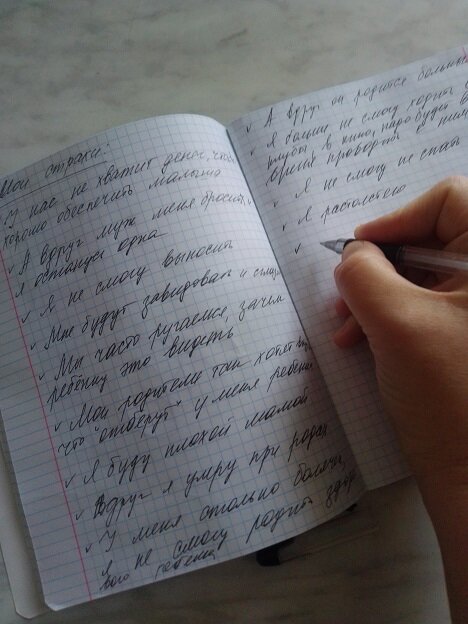 Мои страхи:
У нас не хватит денег, чтобы
хорошо обеспечить малыша
✓ А вдруг муж меня бросит, и
я останусь одна
✓ Я не смогу выносить
✓ Мне будут завидовать и
✓ Мы часто ругаемся, зачем
ребёнку это видеть
✓ Мои родители так хотят
что "отберут" у меня ребёнка
✓ Я буду плохой мамой
✓ Вдруг я умру при родах
✓ У меня столько болячек,
я не смогу родить
ребёнка!
✓ А вдруг он родится больным
✓ Я больше не смогу ходить в
клубы, в кино, надо будет всё
время проводить с ним
✓ Я не смогу не спать
✓ Я растолстею
✓